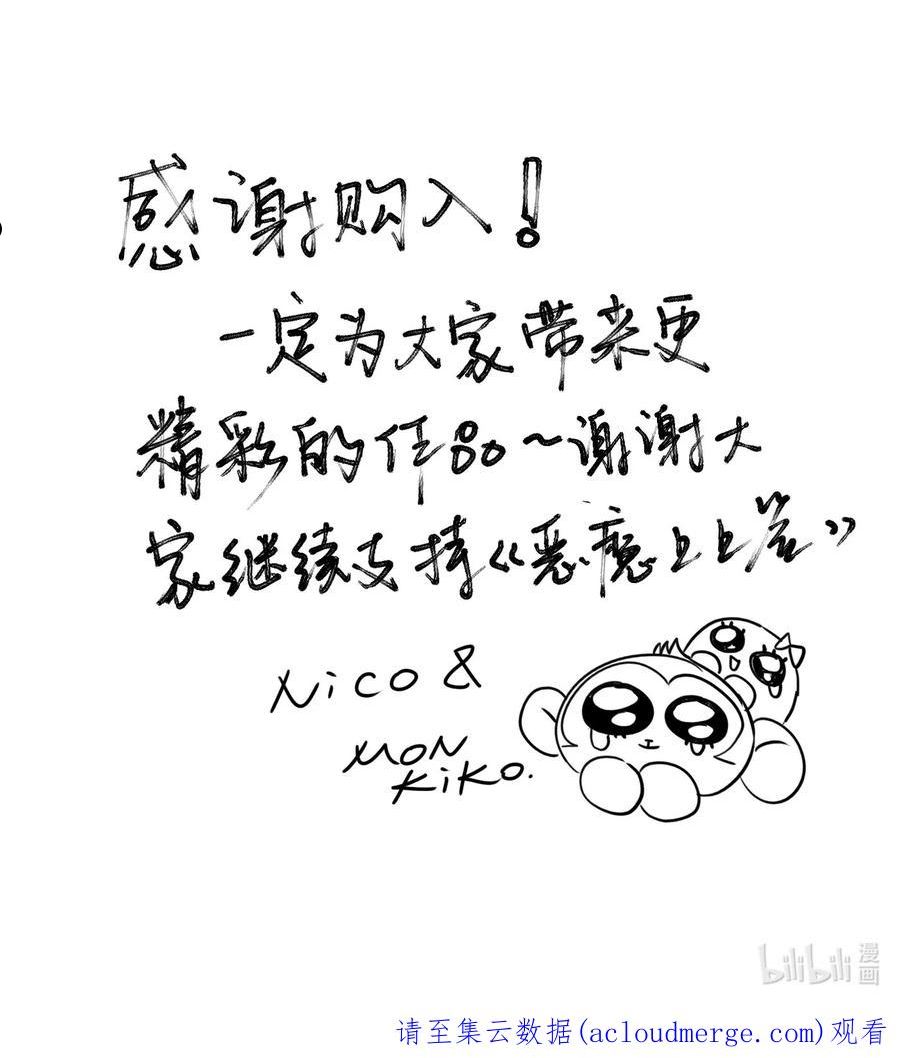 感谢购入！
一定为大家带来更
精彩的作品～谢谢大
家继续支持《恶魔上上签》
Nico &
MON
KiKO.
bilibili 漫画
请至集云数据(acloudmerge.com)观看